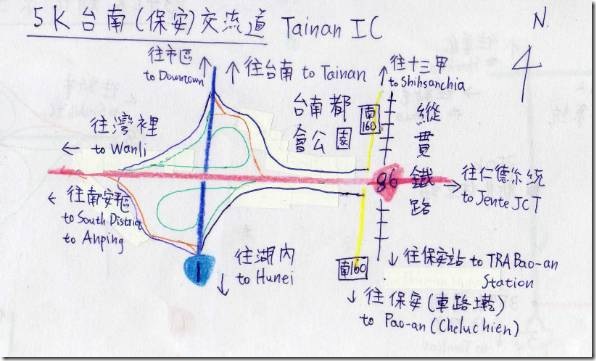 5K 台南(保安)交流道 Tainan IC
N
4
往市區
to Downtown
往台南 to Tainan
往十三甲
to Shihsanchia
台南都
會公園
南
160
縱
貫
鐵
路
往灣裡
to Wanli
86
往仁德系統
to Jente JCT
往南安區
to South District
to Anping
1
往湖內
to Hunei
南160
往保安站 to TRA Pao-an
Station
往保安(車路墘)
to Pao-an (Cheluchien)